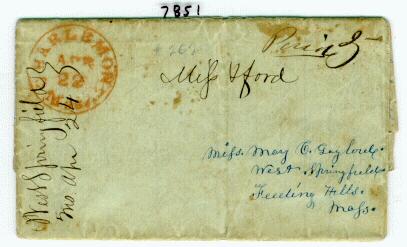 7851
CHARLEMONT
APR
22
Paid 5
Miss Ford
West Springfield
Apr 24
Miss. Mary C. Gaylord.
West Springfield.
Feeding Hills.
Mass.